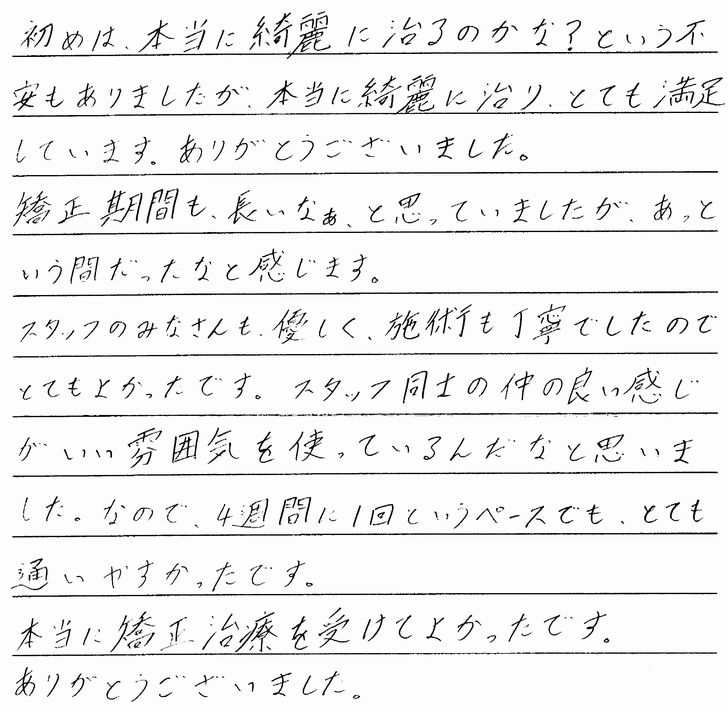 初めは、本当に綺麗に治るのかな?という不
安もありましたが、本当に綺麗に治り、とても満足
しています。ありがとうございました。
矯正期間も、長いなぁ、と思っていましたが、あっと
いう間だったなと感じます。
スタッフのみなさんも、優しく、施術も丁寧でしたので
とてもよかったです。スタッフ同士の仲の良い感じ
がいい雰囲気を使っているんだなと思いま
した。なので、4週間に1回というペースでも、とても
通いやすかったです。
本当に矯正治療を受けてよかったです。
ありがとうございました。